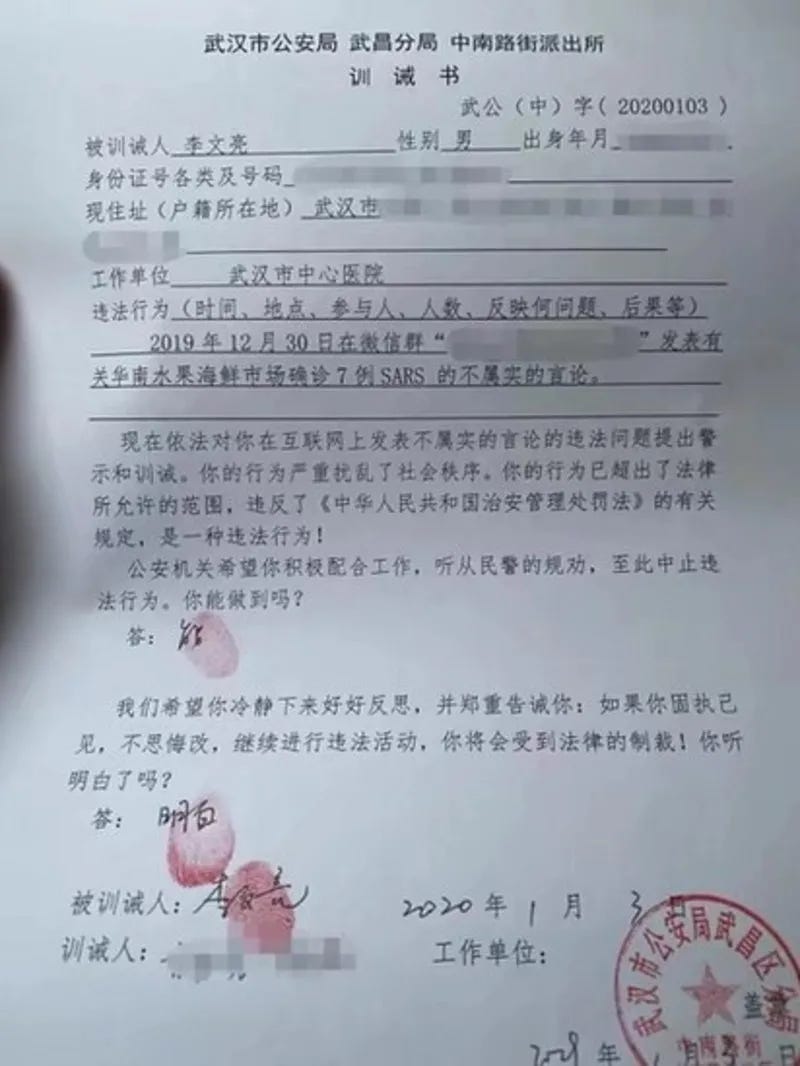 武汉市公安局 武昌分局 中南路街派出所
训 诫 书
武公（中）字（ 20200103 ）
被训诫人 李文亮 性别 男 出身年月
身份证号各类及号码
现住址（户籍所在地） 武汉市
工作单位 武汉市中心医院
违法行为（时间、地点、参与人、人数、反映何问题、后果等）
2019 年 12 月 30 日在微信群“ ”发表有
关华南水果海鲜市场确诊 7 例 SARS 的不属实的言论。
现在依法对你在互联网上发表不属实的言论的违法问题提出警
示和训诫。你的行为严重扰乱了社会秩序。你的行为已超出了法律
所允许的范围，违反了《中华人民共和国治安管理处罚法》的有关
规定，是一种违法行为！
公安机关希望你积极配合工作，听从民警的规劝，至此中止违
法行为。你能做到吗？
答： 能
我们希望你冷静下来好好反思，并郑重告诫你：如果你固执己
见，不思悔改，继续进行违法活动，你将会受到法律的制裁！你听
明白了吗？
答： 明白
被训诫人：李文亮 2020 年 1 月 3 日
训诫人： 工作单位：
武汉市公安局武昌区分局
中南路街
盖章
年 1 月 3 日